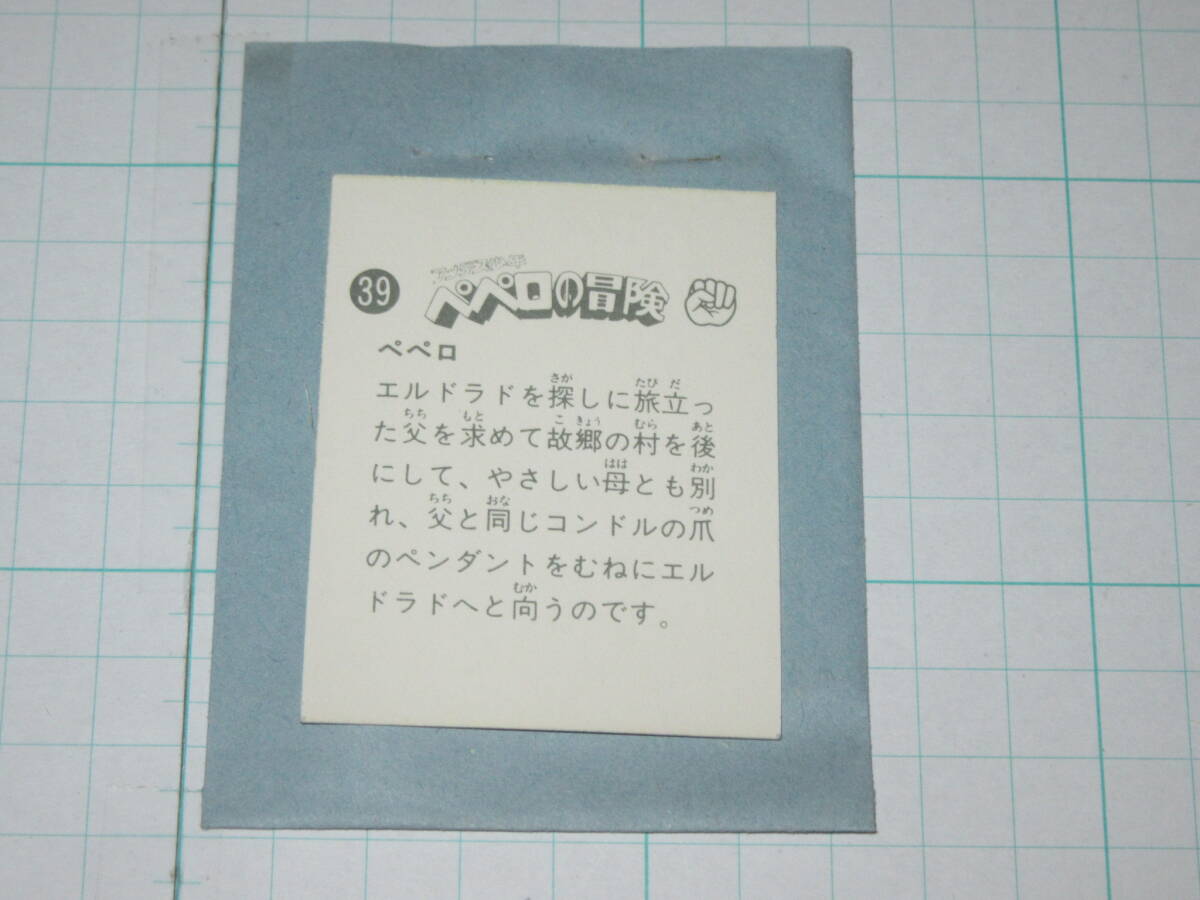 アンデス少年
39 ペペロの冒険
ペペロ
エルドラドを探しに旅立っ
た父を求めて故郷の村を後
にして、やさしい母とも別
れ、父と同じコンドルの爪
のペンダントをむねにエル
ドラドへと向うのです。